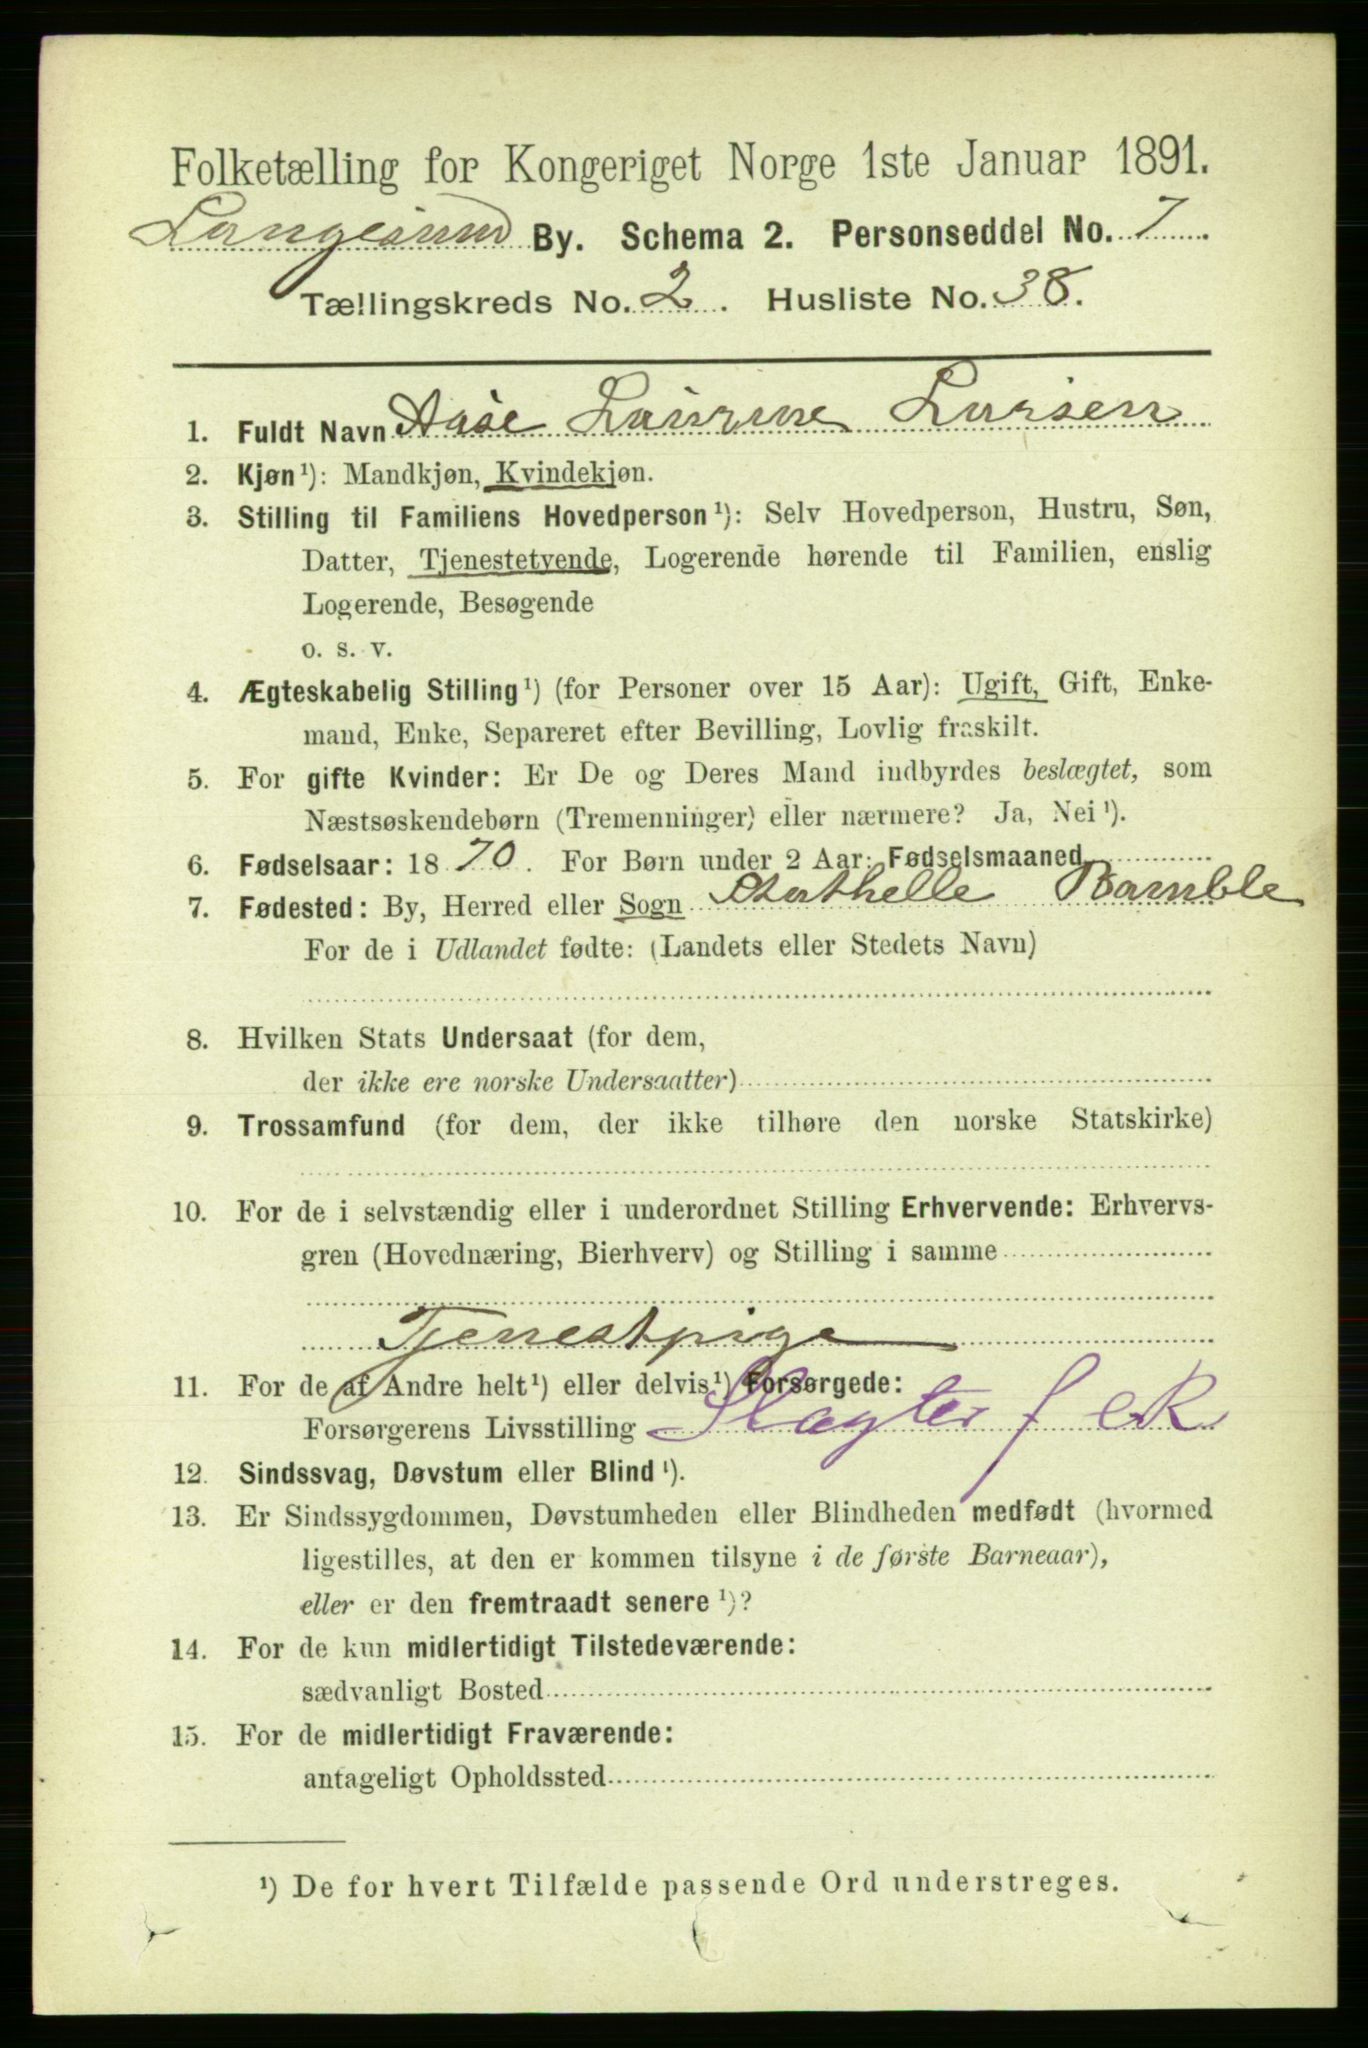 Folketælling for Kongeriget Norge 1ste Januar 1891.
Langesund By. Schema 2. Personseddel No. 7
Tællingskreds No. 2. Husliste No. 38.
1. Fuldt Navn Aase Laurine Larsen
2. Kjøn ¹): Mandkjøn, Kvindekjøn.
3. Stilling til Familiens Hovedperson ¹): Selv Hovedperson, Hustru, Søn,
Datter, Tjenestetyende, Logerende hørende til Familien, enslig
Logerende, Besøgende
o. s. v.
4. Ægteskabelig Stilling ¹) (for Personer over 15 Aar): Ugift, Gift, Enke-
mand, Enke, Separeret efter Bevilling, Lovlig fraskilt.
5. For gifte Kvinder: Er De og Deres Mand indbyrdes beslægtet, som
Næstsøskendebørn (Tremenninger) eller nærmere? Ja, Nei ¹).
6. Fødselsaar: 1870. For Børn under 2 Aar: Fødselsmaaned
7. Fødested: By, Herred eller Sogn Stathelle Bamble
For de i Udlandet fødte: (Landets eller Stedets Navn)
8. Hvilken Stats Undersaat (for dem,
der ikke ere norske Undersaatter)
9. Trossamfund (for dem, der ikke tilhøre den norske Statskirke)
10. For de i selvstændig eller i underordnet Stilling Erhvervende: Erhvervs-
gren (Hovednæring, Bierhverv) og Stilling i samme
Tjenestpige
11. For de af Andre helt ¹) eller delvis ¹) Forsørgede:
Forsørgerens Livsstilling Slagter f eR
12. Sindssvag, Døvstum eller Blind ¹).
13. Er Sindssygdommen, Døvstumheden eller Blindheden medfødt (hvormed
ligestilles, at den er kommen tilsyne i de første Barneaar),
eller er den fremtraadt senere ¹)?
14. For de kun midlertidigt Tilstedeværende:
sædvanligt Bosted
15. For de midlertidigt Fraværende:
antageligt Opholdssted
¹) De for hvert Tilfælde passende Ord understreges.